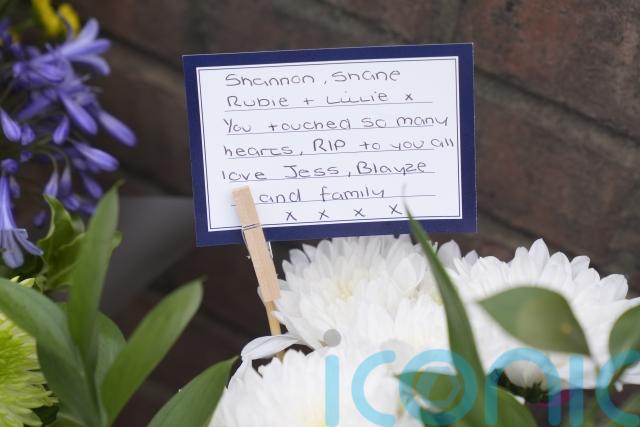 Shannon, Shane
Rubie + Lillie x
You touched so many
hearts, RIP to you all
love Jess, Blayze
and family
x x x x
iconic